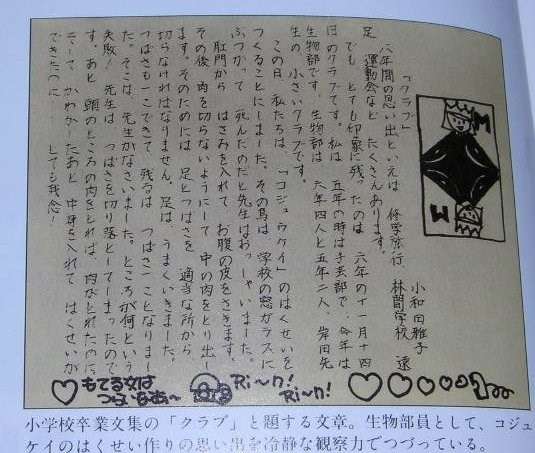 「クラブ」
小和田雅子
六年間の思い出といえば 修学旅行 林間学校 遠
足 運動会など たくさんあります。
でも とても印象に残ったのは 六年の十一月十四
日のクラブです。私は 五年の時は手芸部で、今年は
生物部です。生物部は 六年四人と五年二人、岸田先
生の 小さいクラブです。
この日 私たちは、「コジュウケイ」のはくせいを
つくることにしました。その鳥は 学校の窓ガラスに
ぶつかって 死んだのだと先生はおっしゃいました。
肛門から はさみを入れて お腹の皮をさきます。
その後 肉を切らないようにして 中の肉をとり出し
ます。そのためには 足とつばさを 適当な所から
切らなければなりません。足は、うまくいきました。
つばさも一こできて、残るは つばさ一ことなりまし
た。そこは、先生がなさいました。ところが何という
失敗!先生は つばさを切り落としてしまったので
す。あと 頭のところの肉をとれば、肉がとれたのに、
そして かわかしたあと 中身を入れて はくせいが
できたのに…… とても残念!
M
M
もてる女は
つらいなあ〜
Ri〜n!
Ri〜n!
小学校卒業文集の「クラブ」と題する文章。生物部員として、コジュ
ケイのはくせい作りの思い出を冷静な観察力でつづっている。